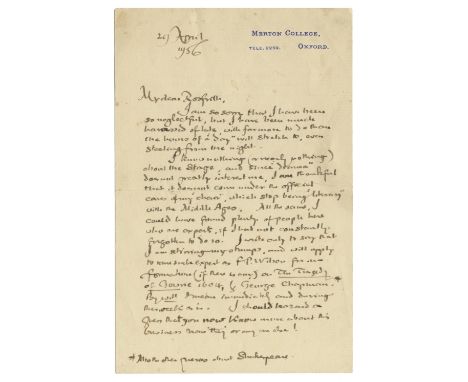 MERTON COLLEGE,
TELE. 2259. OXFORD.
29 April
1956
My dear Bosfield,
I am so sorry that I have been
so neglectful, but I have been much
harassed of late, with far more to do than
the hours of a day will stretch to, even
stealing from the night.
I know nothing (or nearly nothing)
about the Stage, and since 'drama'
does not greatly interest me, I am thankful
that it does not come under the official
cares of my chair, which stop being 'literary'
with the Middle Ages. All the same, I
could have found plenty of people here
who are expert, if I had not constantly
forgotten to do so. I write only to say that
I am stirring my stumps, and will apply
to such an expert as F.P. Wilson for in-
formation (if there is any) on The Tragedy
of 1604, by George Chapman. *
By will I mean immediately and during
this week as is. I should hazard a
guess that you now know more about this
business now than or any one else!
* Also the other queries about Shakespeare.